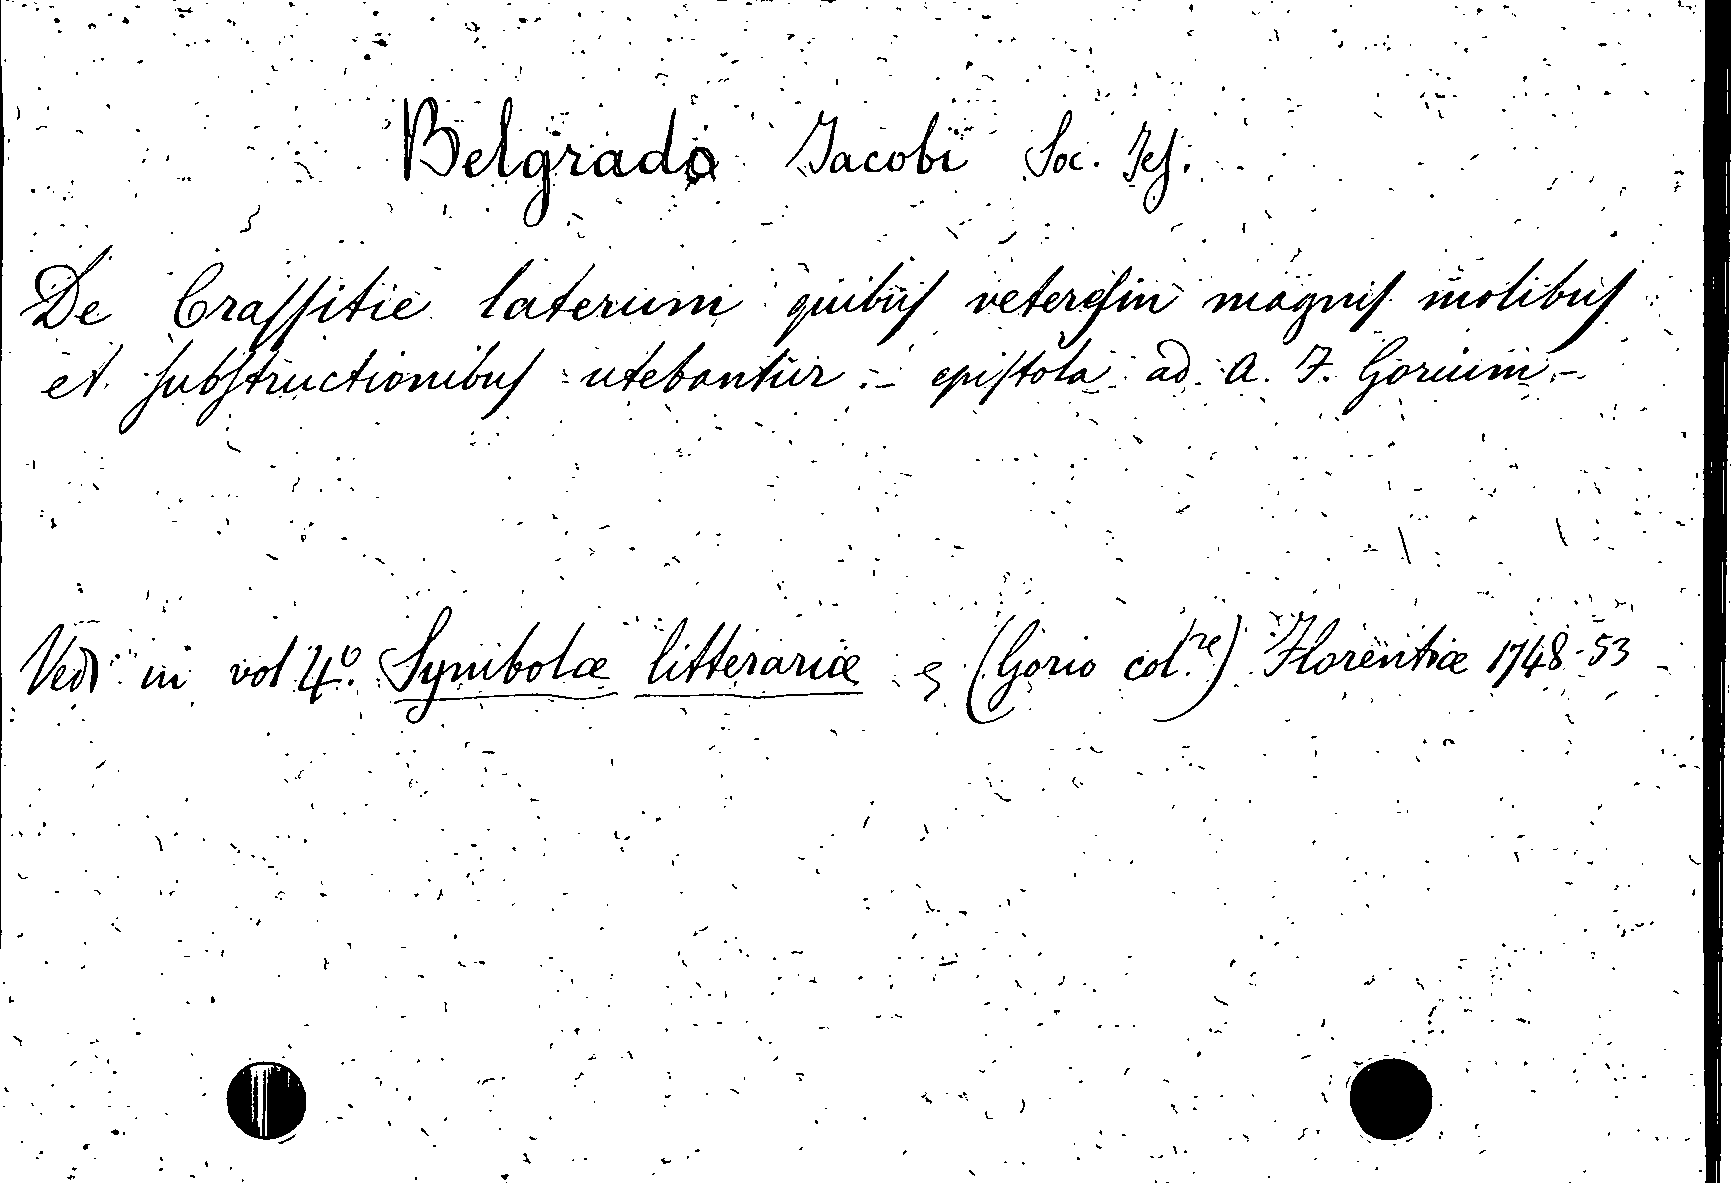 Belgrado Jacobi Soc. Jes.
De Crassitie laterum quibus veteres in magnis molibus
et substructionibus utebantur :- epistola ad A. F. Gorium.-
Vedi in vol 4º. Symbolæ litterariæ (Gorio col.re) Florentiæ 1748-53